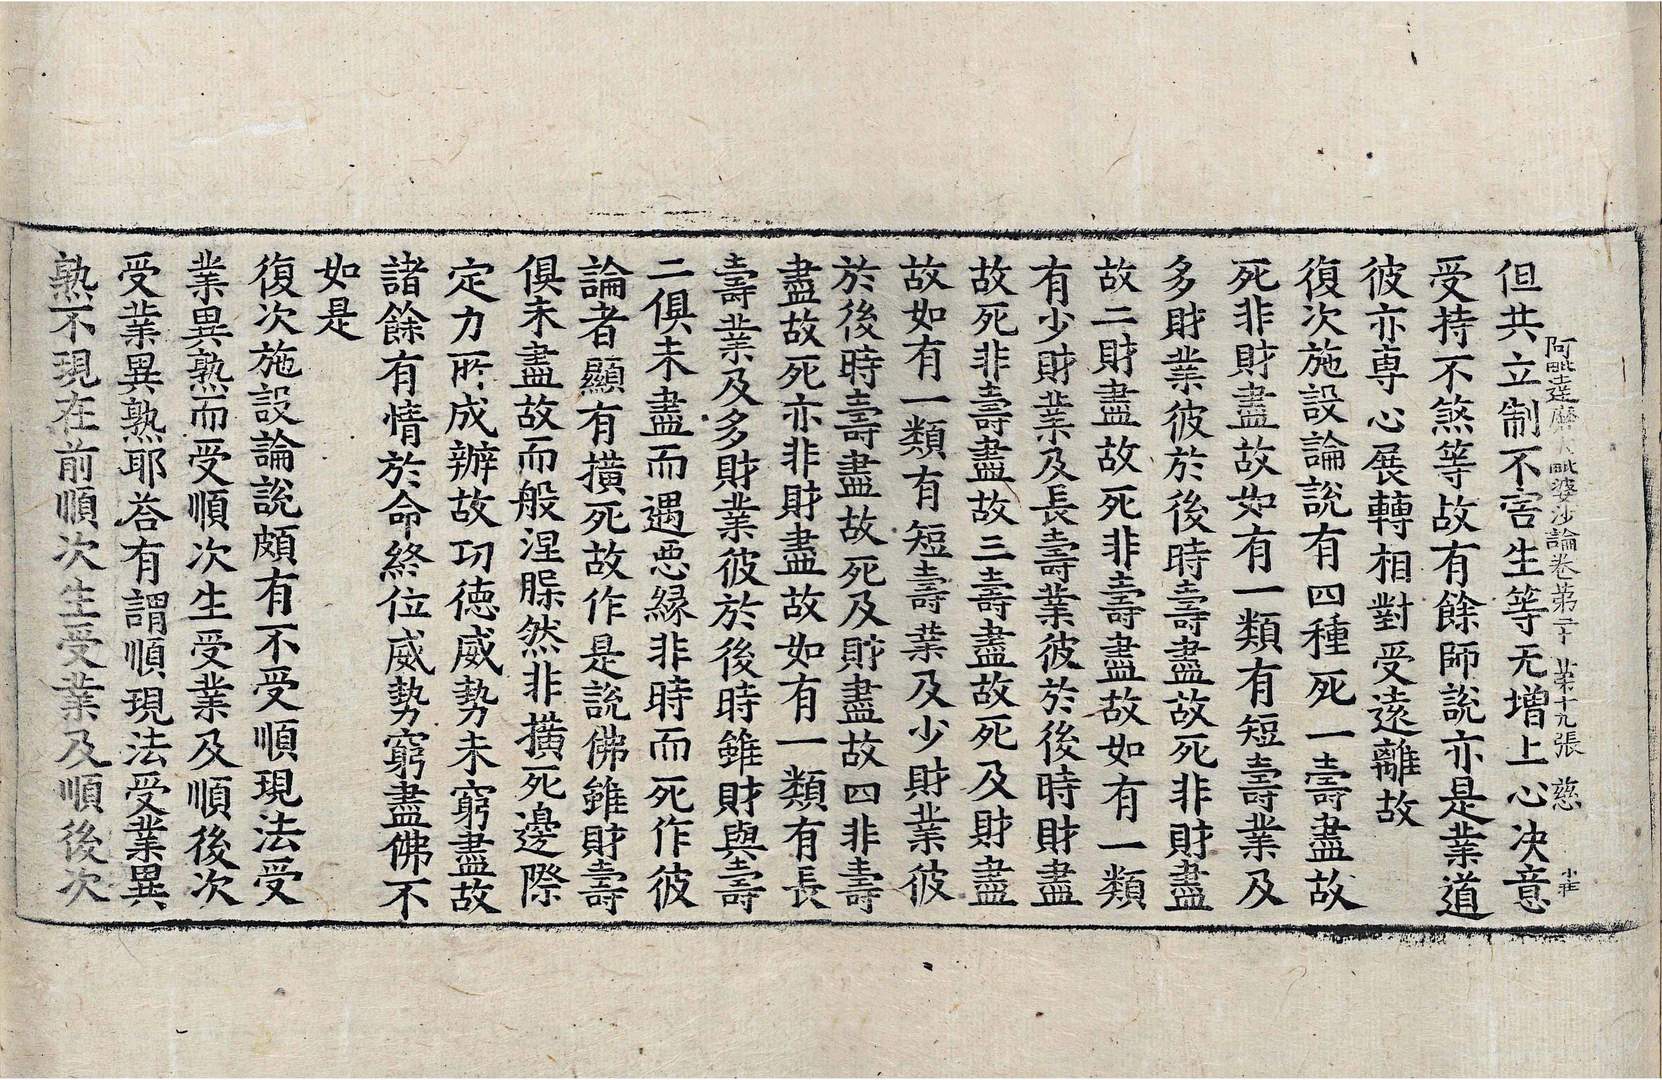 阿毗達磨大毗婆沙論卷第二十 第十九張 慈
小莊
但共立制不害生等无增上心决意
受持不煞等故有餘師說亦是業道
彼亦専心展轉相對受遠離故
復次施設論說有四種死一壽盡故
死非財盡故如有一類有短壽業及
多財業彼於後時壽盡故死非財盡
故二財盡故死非壽盡故如有一類
有少財業及長壽業彼於後時財盡
故死非壽盡故三壽盡故死及財盡
故如有一類有短壽業及少財業彼
於後時壽盡故死及財盡故四非壽
盡故死亦非財盡故如有一類有長
壽業及多財業彼於後時雖財與壽
二俱未盡而遇惡緣非時而死作彼
論者顯有橫死故作是說佛雖財壽
俱未盡故而般涅槃然非橫死邊際
定力所成辦故功德威勢未窮盡故
諸餘有情於命終位威勢窮盡佛不
如是
復次施設論說頗有不受順現法受
業異熟而受順次生受業及順後次
受業異熟耶荅有謂順現法受業異
熟不現在前順次生受業及順後次